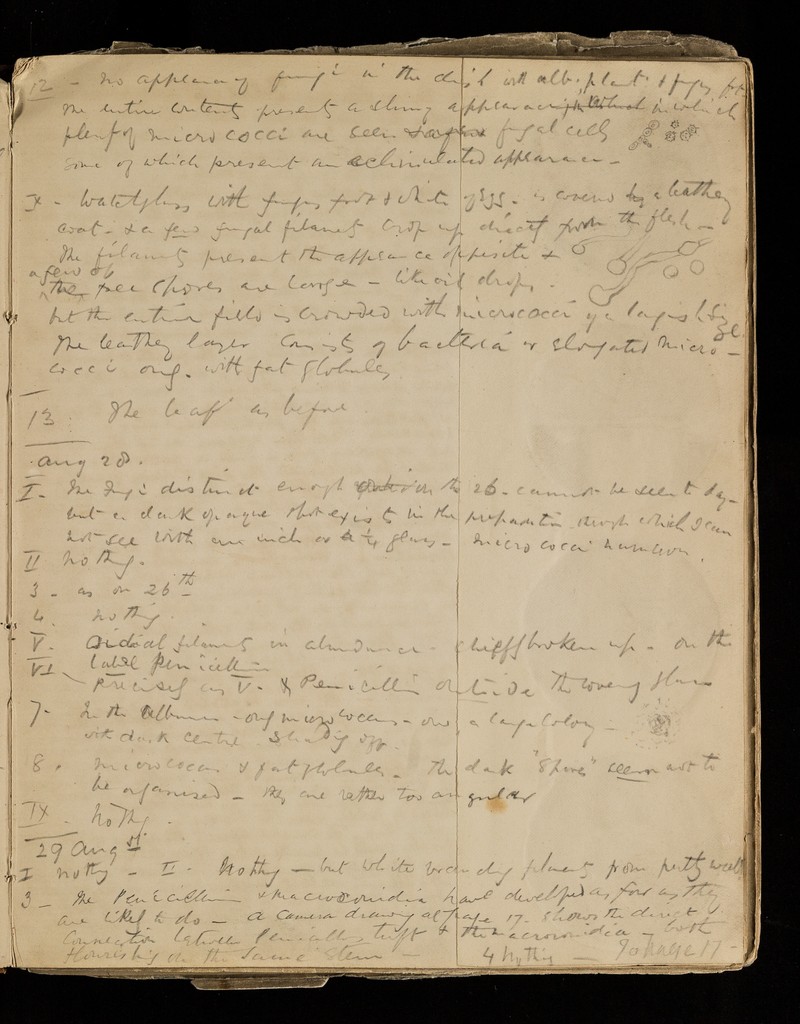 12 - no appearance of fungi in the dish with alb. plant & fungus
the entire contents present a slimy appearance in which
plenty of micrococci are seen fungal cells
some of which present an echinulated appearance -
X - Watchglass with fungus foot & white of Egg - is covered by a leathery
coat - & a few fungal filaments crop up direct from the flesh -
The filaments present the appearance opposite &
a few of
the free spores are large - like oil drops.
but the entire field is crowded with micrococci of a largish size
The leathery layer consists of bacteria or elongated micro-
cocci only with fat globules
13. The leaf as before
Aug 28.
I. The fungi distinct enough on the 26 - cannot be seen to day -
but a dark opaque spot exists in the preparation through which I can
not see with one inch or 1/4 glass - micrococci numerous.
II nothing.
3 - as on 26th
4. nothing.
V. Oidial filaments in abundance - chiefly broken up - on the
label Penicillium
VI Precisely as V. & Penicillium outside the covering glass
7. In the Albumen - only micrococcus - one a large colony -
with dark centre shading off.
8. micrococcus & fat globules - The dark "Spores" seem not to
be organised - they are rather too angular
IX. nothing.
29 Aug st
I nothing - II. Nothing - but white branching filaments from putty wall
3 - The Penicillium & macroconidia have developed as far as they
are likely to do - a camera drawing at page 17. shows the direct
connection between Penicillium tuft & the macroconidia - both
flourishing on the same stem -
4 Nothing - To page 17 -